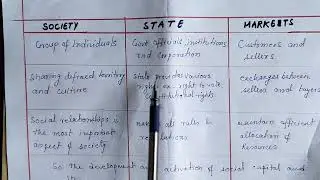 SOCIETY
STATE
MARKENTS
Group of Individuals
Govt officials, institutions
and corporation
Customers and
sellers.
Sharing defined territory
and culture
State provides various
rights ex. right to vote
constitutional rights
exchanges between
sellers and buyers
Social relationships is
the most important
aspect of society
rules to
maintain efficient
allocation of
Resources
So the development and activation of social capital and